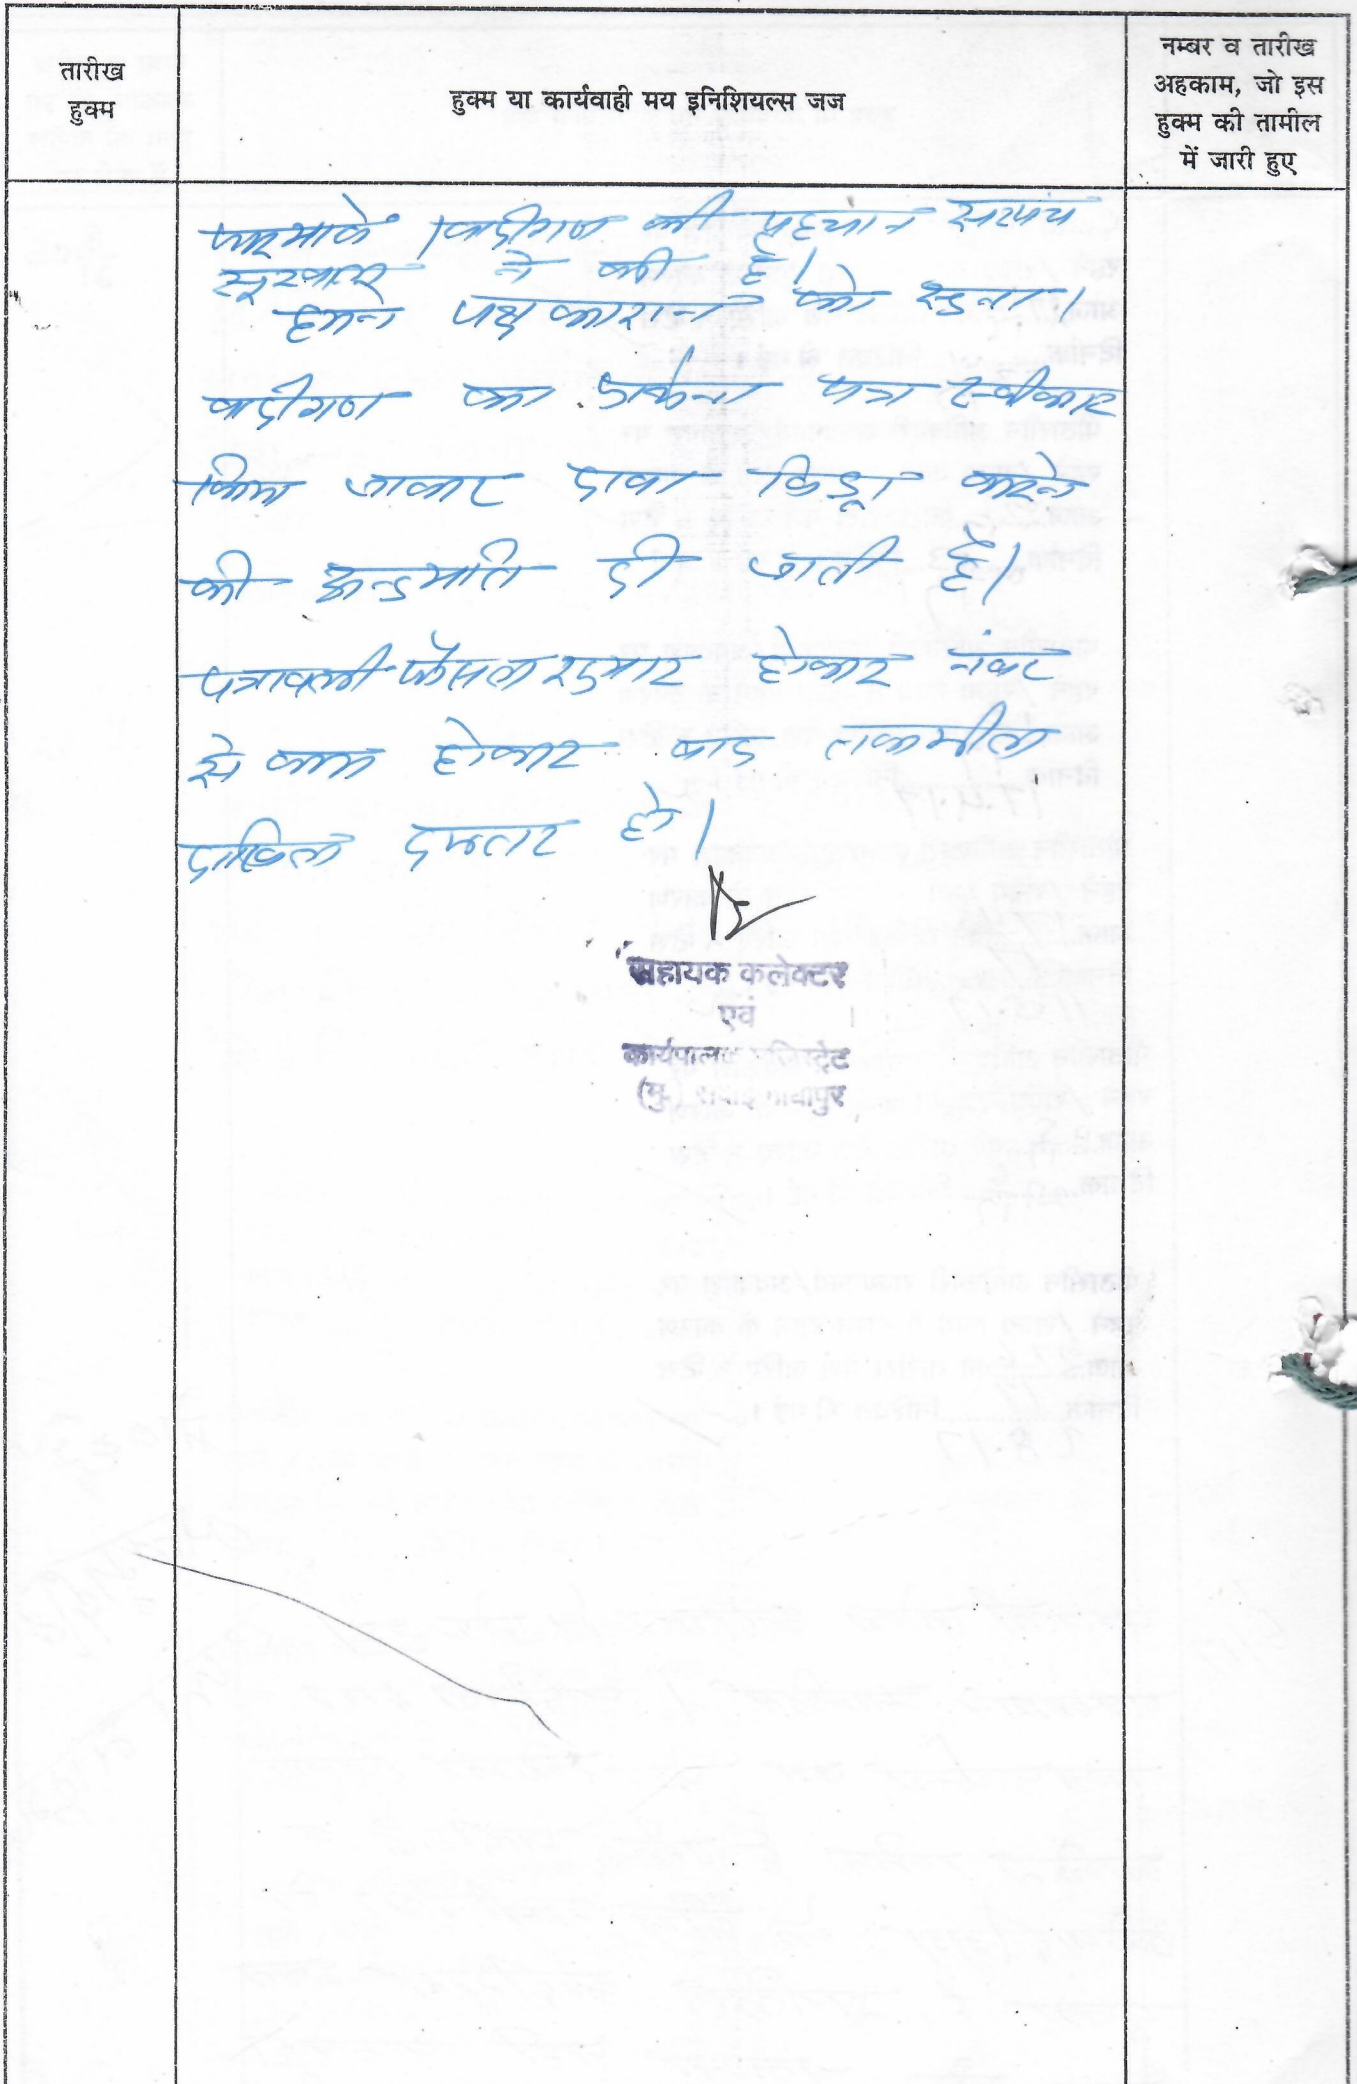 तारीख
हुक्म
हुक्म या कार्यवाही मय इनिशियल्स जज
नम्बर व तारीख
अहकाम, जो इस
हुक्म की तामील
में जारी हुए
फरमावें। वादीगण की पहचान सरपंच
ने की है।
हमने पक्षकारान को सुना।
वादीगण का प्रार्थना पत्र स्वीकार
किया जाकर दावा विड्रा करने
की अनुमति दी जाती है।
पत्रावली फैसल शुमार होकर नंबर
से कम होकर बाद तकमील
दाखिल दफ्तर हो।
सहायक कलेक्टर
एवं
कार्यपालक मजिस्ट्रेट
(मु.) सवाई माधोपुर